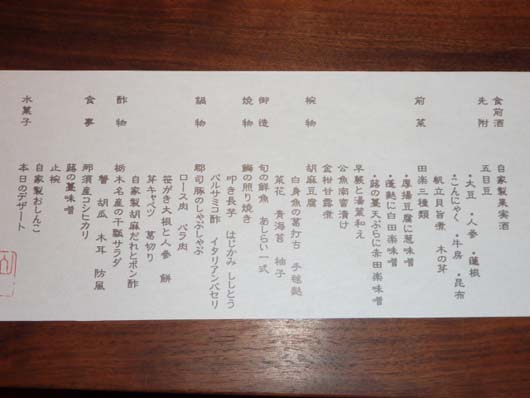 食前酒 自家製果実酒
先附 五目豆
・大豆 ・人参 ・蓮根
・こんにゃく ・牛房 ・昆布
帆立貝旨煮 木の芽
前菜 田楽三種類
・厚揚豆腐に葱味噌
・蓬麩に白田楽味噌
・蕗の薹天ぷらに赤田楽味噌
早蕨と湯葉和え
公魚南蛮漬け
金柑甘露煮
胡麻豆腐
椀物 白身魚の葛打ち 手毬麩
菜花 青海苔 柚子
御造 旬の鮮魚 あしらい一式
焼物 鰤の照り焼き
叩き長芋 はじかみ ししとう
バルサミコ酢 イタリアンパセリ
鍋物 郡司豚のしゃぶしゃぶ
ロース肉 バラ肉
笹がき大根と人参 餅
芽キャベツ 葛切り
自家製胡麻だれとポン酢
酢物 栃木名産の干瓢サラダ
蟹 胡瓜 木耳 防風
食事 那須産コシヒカリ
蕗の薹味噌
止椀
自家製おしんこ
水菓子 本日のデザート